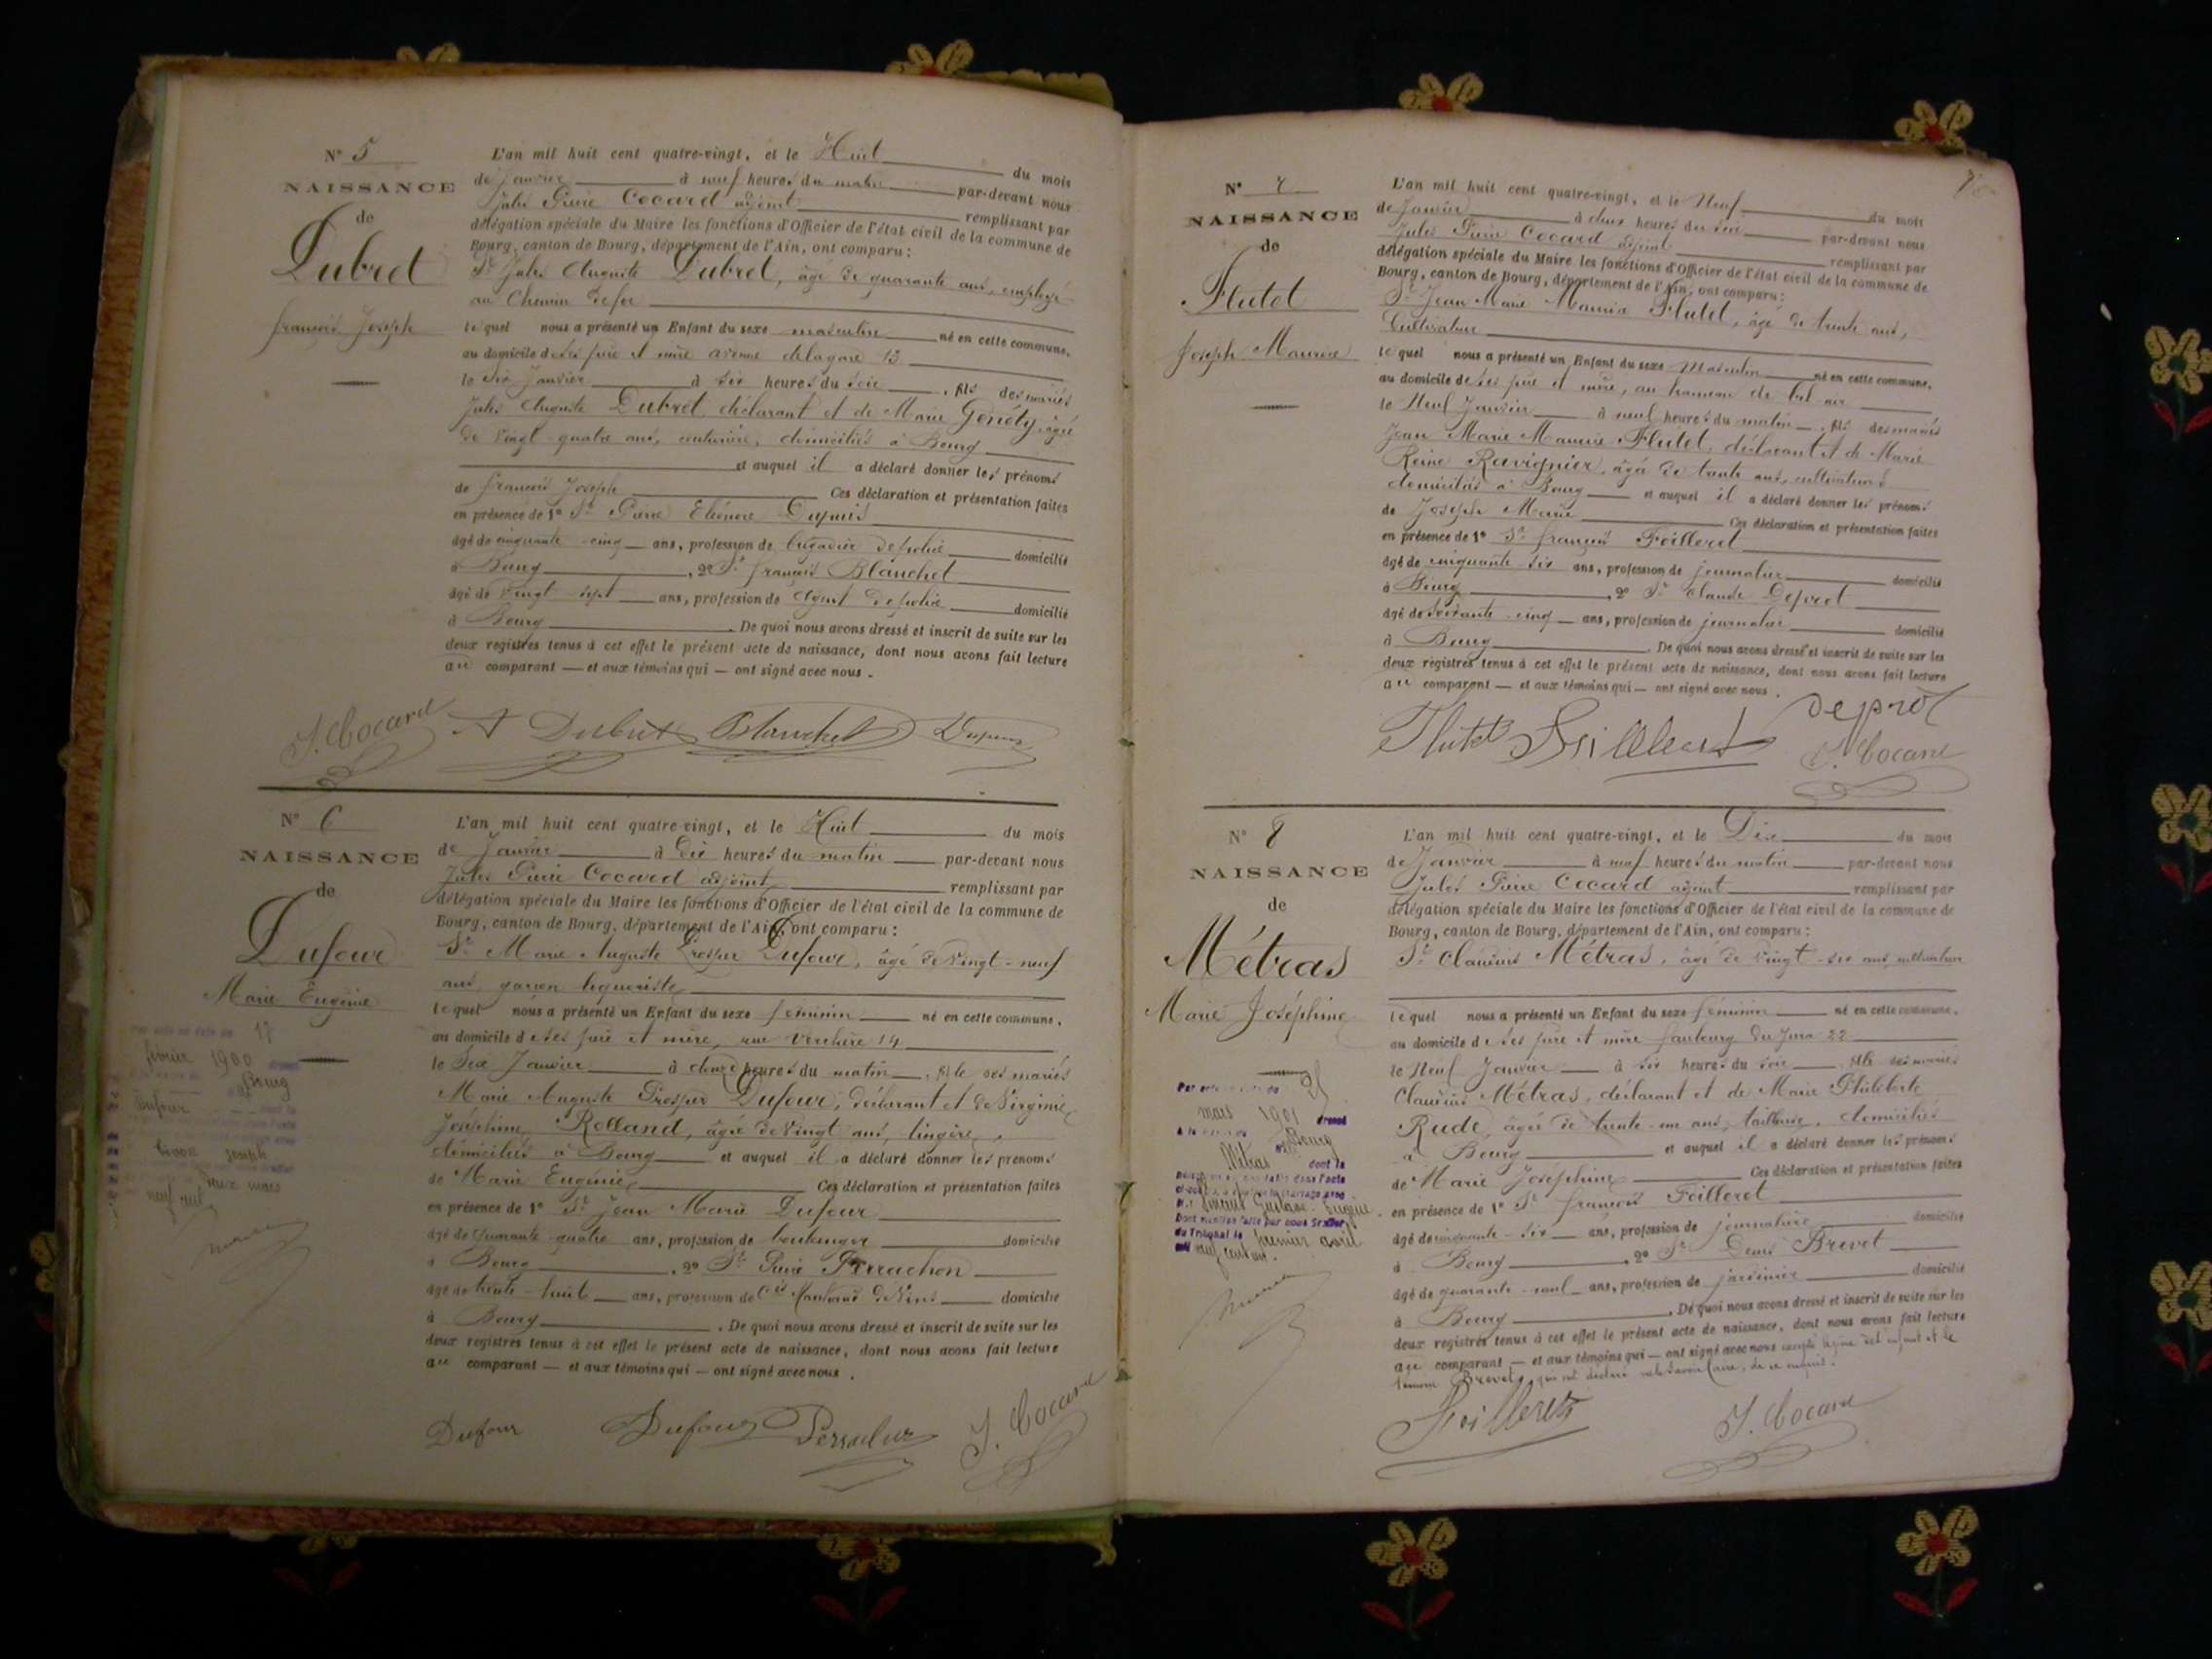 N° 5
NAISSANCE
de
Dubret
François Joseph
L'an mil huit cent quatre-vingt, et le Huit du mois
de Janvier à neuf heures du matin par-devant nous
Jules Pierre Cocard adjoint remplissant par
délégation spéciale du Maire les fonctions d'Officier de l'état civil de la commune de
Bourg, canton de Bourg, département de l'Ain, ont comparu :
Sr Jules Auguste Dubret, âgé de quarante ans, employé
au Chemin de fer
lequel nous a présenté un Enfant du sexe masculin né en cette commune,
au domicile de ses père et mère avenue de la gare 13
le Six Janvier à six heures du soir, fils des mariés
Jules Auguste Dubret, déclarant et de Marie Genéty, âgée
de vingt-quatre ans, couturière, domiciliés à Bourg
et auquel il a déclaré donner les prénoms
de François Joseph Ces déclaration et présentation faites
en présence de 1° Sr Pierre Eléonore Dupuis
âgé de cinquante-cinq ans, profession de brigadier de police domicilié
à Bourg, 2° Sr François Blanchet
âgé de vingt-sept ans, profession de agent de police domicilié
à Bourg. De quoi nous avons dressé et inscrit de suite sur les
deux registres tenus à cet effet le présent acte de naissance, dont nous avons fait lecture
au comparant — et aux témoins qui — ont signé avec nous.
J. Cocard A Dubret Blanchet Dupuis
N° 6
NAISSANCE
de
Dufour
Marie Eugénie
17
février 1900
Bourg
Dufour
Joseph
deux mars
neuf cent
L'an mil huit cent quatre-vingt, et le Huit du mois
de Janvier à dix heures du matin par-devant nous
Jules Pierre Cocard adjoint remplissant par
délégation spéciale du Maire les fonctions d'Officier de l'état civil de la commune de
Bourg, canton de Bourg, département de l'Ain, ont comparu :
Sr Marie Auguste Prosper Dufour, âgé de vingt-neuf
ans, garçon liquoriste
lequel nous a présenté un Enfant du sexe féminin né en cette commune,
au domicile de ses père et mère, rue Verchère 14
le Six Janvier à deux heures du matin, fille des mariés
Marie Auguste Prosper Dufour, déclarant et de Virginie
Joséphine Rolland, âgée de vingt ans, lingère,
domiciliés à Bourg et auquel il a déclaré donner les prénoms
de Marie Eugénie Ces déclaration et présentation faites
en présence de 1° Sr Jean Marie Dufour
âgé de quarante-quatre ans, profession de boulanger domicilié
à Bourg, 2° Sr Pierre Perrachon
âgé de trente-huit ans, profession de Cis Marchand de Vins domicilié
à Bourg. De quoi nous avons dressé et inscrit de suite sur les
deux registres tenus à cet effet le présent acte de naissance, dont nous avons fait lecture
au comparant — et aux témoins qui — ont signé avec nous.
Dufour Dufour Perrachon J. Cocard
N° 7
NAISSANCE
de
Flutet
Joseph Maurice
L'an mil huit cent quatre-vingt, et le Neuf du mois
de Janvier à deux heures du soir par-devant nous
Jules Pierre Cocard adjoint remplissant par
délégation spéciale du Maire les fonctions d'Officier de l'état civil de la commune de
Bourg, canton de Bourg, département de l'Ain, ont comparu :
Sr Jean Marie Maurice Flutet, âgé de trente ans,
Cultivateur
lequel nous a présenté un Enfant du sexe Masculin né en cette commune,
au domicile de ses père et mère, au hameau de bel air
le Neuf Janvier à neuf heures du matin, fils des mariés
Jean Marie Maurice Flutet, déclarant et de Marie
Reine Ravignier, âgée de trente ans, cultivateurs
domiciliés à Bourg et auquel il a déclaré donner les prénoms
de Joseph Marie Ces déclaration et présentation faites
en présence de 1° Sr François Foilleret
âgé de cinquante-six ans, profession de journalier domicilié
à Bourg, 2° Sr Claude Deprot
âgé de soixante-cinq ans, profession de journalier domicilié
à Bourg. De quoi nous avons dressé et inscrit de suite sur les
deux registres tenus à cet effet le présent acte de naissance, dont nous avons fait lecture
au comparant — et aux témoins qui — ont signé avec nous.
Flutet Foilleret deprot
J. Cocard
N° 8
NAISSANCE
de
Métras
Marie Joséphine
25
mars 1901
Bourg
Métras dont la
Gustave Eugène
Dont mention faite par nous Greffier
du Tribunal le premier avril
mil neuf cent un.
L'an mil huit cent quatre-vingt, et le Dix du mois
de Janvier à neuf heures du matin par-devant nous
Jules Pierre Cocard adjoint remplissant par
délégation spéciale du Maire les fonctions d'Officier de l'état civil de la commune de
Bourg, canton de Bourg, département de l'Ain, ont comparu :
Sr Claudius Métras, âgé de vingt-six ans, cultivateur
lequel nous a présenté un Enfant du sexe féminin né en cette commune,
au domicile de ses père et mère faubourg du Jura 22
le Neuf Janvier à six heures du soir, fille des mariés
Claudius Métras, déclarant et de Marie Philiberte
Rude, âgée de trente-un ans, tailleuse, domiciliés
à Bourg et auquel il a déclaré donner les prénoms
de Marie Joséphine Ces déclaration et présentation faites
en présence de 1° Sr François Foilleret
âgé de cinquante-six ans, profession de journalier domicilié
à Bourg, 2° Sr Denis Brevet
âgé de quarante-neuf ans, profession de jardinier domicilié
à Bourg. De quoi nous avons dressé et inscrit de suite sur les
deux registres tenus à cet effet le présent acte de naissance, dont nous avons fait lecture
au comparant — et aux témoins qui — ont signé avec nous excepté le père de l'enfant et le
témoin Brevet, qui ont déclaré ne le savoir faire, de ce enquis.
Foilleret J. Cocard